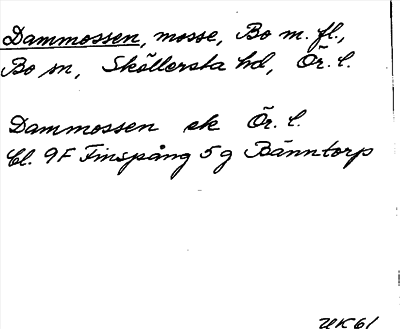 Dammossen, mosse, Bo m. fl.,
Bo sn, Sköllersta hd, Ör. l.
Dammossen ek Ör. l.
Bl. 9F Finspång 5 g Bänntorp
UK61